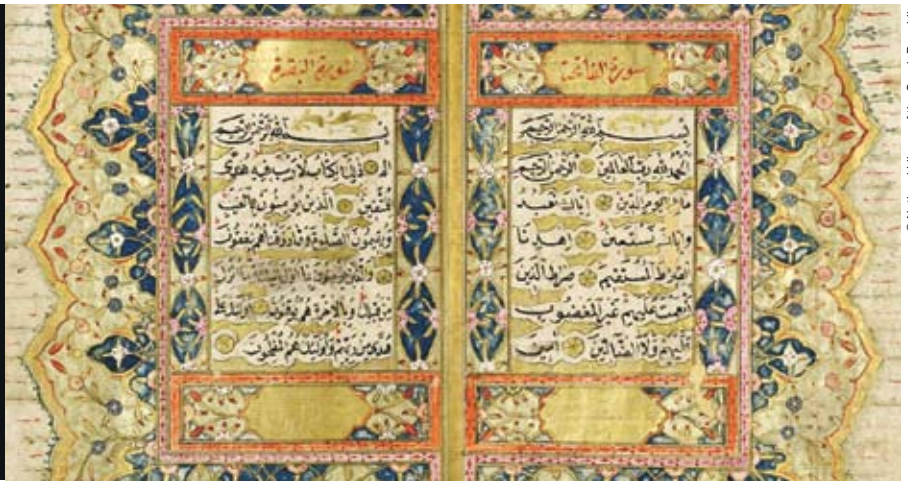 سورة الفاتحة
بسم الله الرحمن الرحيم
الحمد لله رب العالمين الرحمن الرحيم
مالك يوم الدين اياك نعبد
واياك نستعين اهدنا
الصراط المستقيم صراط الذين
انعمت عليهم غير المغضوب
عليهم ولا الضالين امين
سورة البقرة
بسم الله الرحمن الرحيم
الم ذلك الكتاب لا ريب فيه هدى
للمتقين الذين يؤمنون بالغيب
ويقيمون الصلوة ومما رزقناهم ينفقون
والذين يؤمنون بما انزل اليك وما انزل
من قبلك وبالاخرة هم يوقنون اولئك على
هدى من ربهم واولئك هم المفلحون